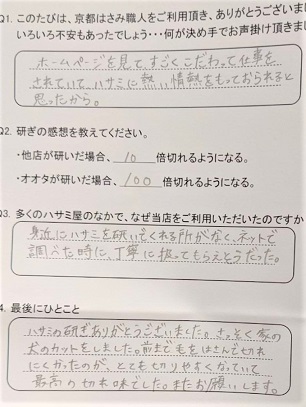 Q1. このたびは、京都はさみ職人をご利用頂き、ありがとうございま
いろいろ不安もあったでしょう・・・何が決め手でお声掛け頂きま
ホームページを見て、すごくこだわって仕事を
されていて、ハサミに熱い情熱をもっておられると
思ったから。
Q2. 研ぎの感想を教えてください。
・他店が研いだ場合、 10 倍切れるようになる。
・オオタが研いだ場合、 100 倍切れるようになる。
Q3. 多くのハサミ屋のなかで、なぜ当店をご利用いただいたのですか
身近にハサミを研いでくれる所がなく、ネットで
調べた時に、丁寧に扱ってもらえそうだった。
4. 最後にひとこと
ハサミの研ぎありがとうございました。さっそく家の
犬のカットをしました。前まで毛をはさんで切れ
にくかったのが、とても切りやすくなっていて
最高の切れ味でした。またお願いします。